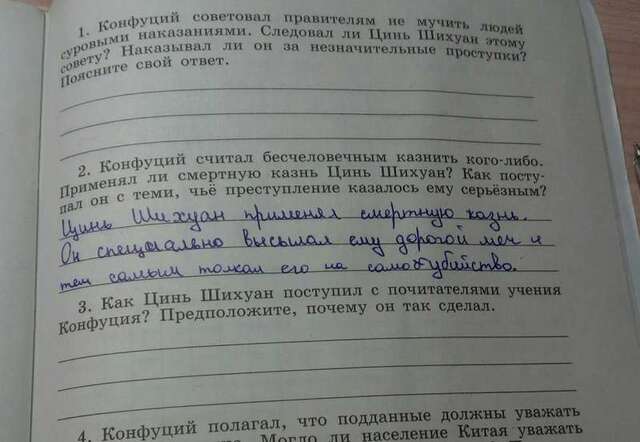 1. Конфуций советовал правителям не мучить людей
суровыми наказаниями. Следовал ли Цинь Шихуан этому
совету? Наказывал ли он за незначительные проступки?
Поясните свой ответ.
2. Конфуций считал бесчеловечным казнить кого-либо.
Применял ли смертную казнь Цинь Шихуан? Как посту-
пал он с теми, чьё преступление казалось ему серьёзным?
Цинь Шихуан применял смертную казнь.
Он специально высылал ему дорогой меч и
тем самым толкал его на самоубийство.
3. Как Цинь Шихуан поступил с почитателями учения
Конфуция? Предположите, почему он так сделал.
4. Конфуций полагал, что подданные должны уважать
Могло ли население Китая уважать